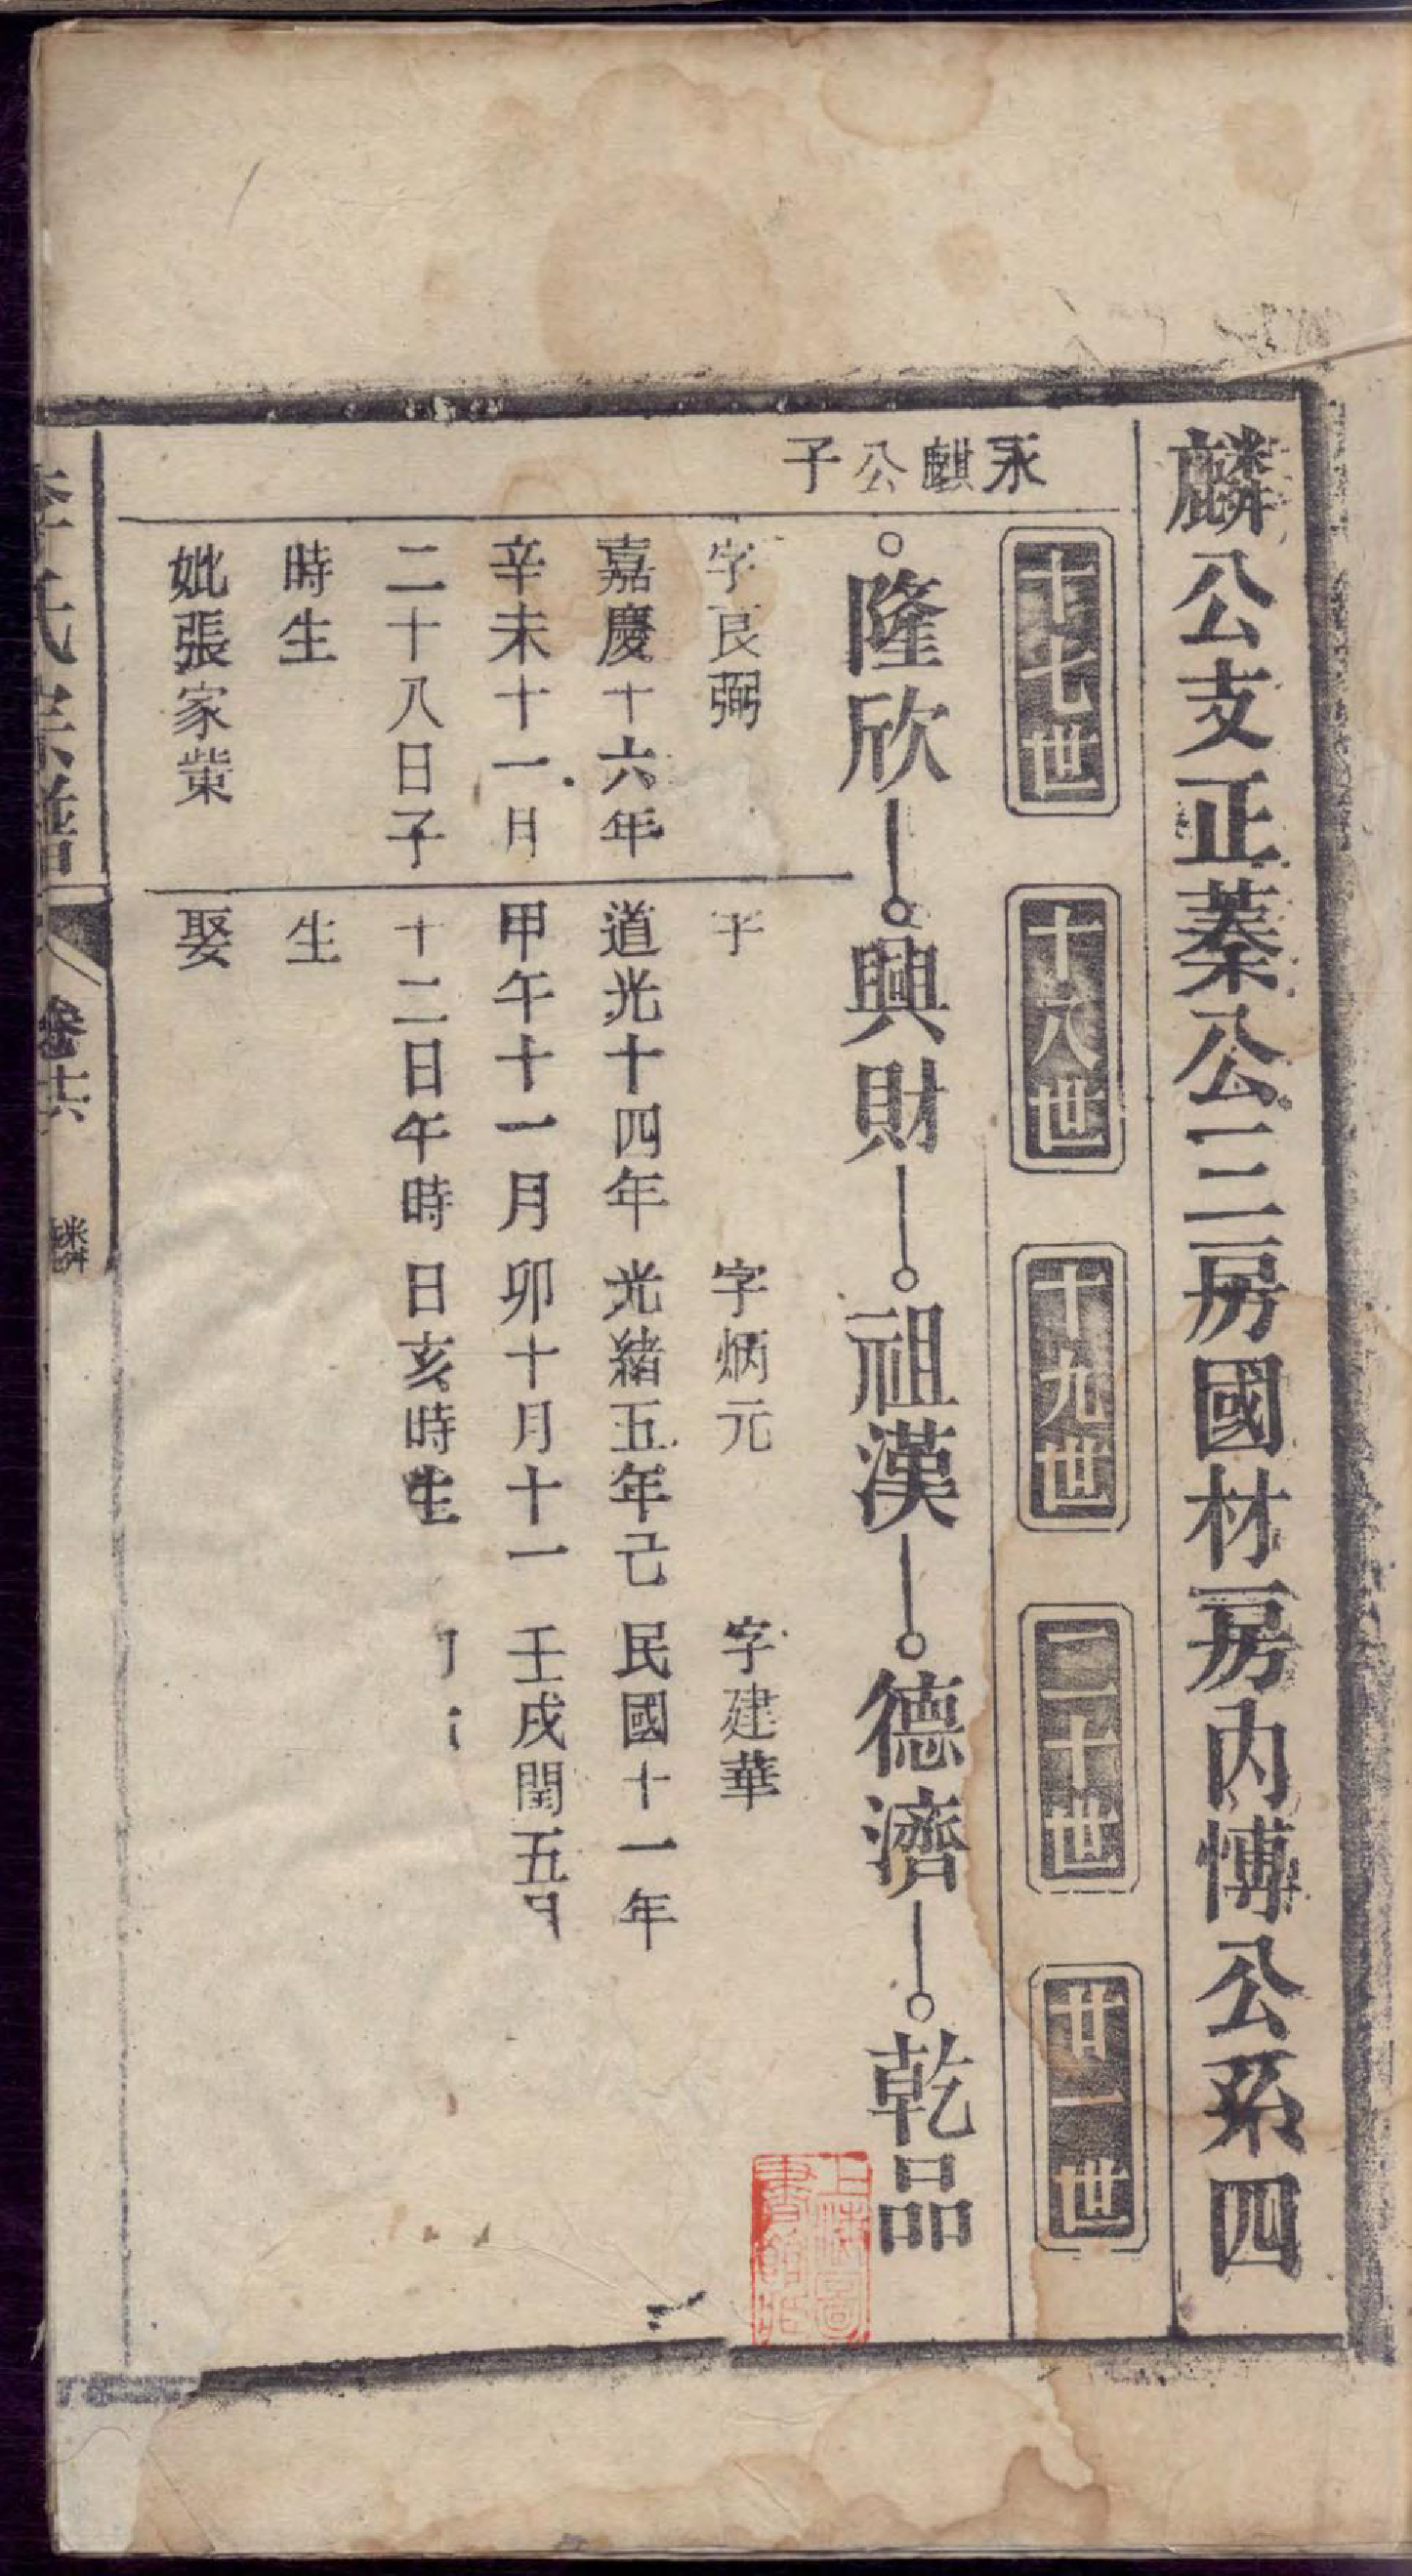 麟公支正蓁公三房國材二房內愽公系四
十七世
十八世
十九世
二十世
廿一世
永麒公子
隆欣
興財
祖漢
德濟
乾品
字良弼
嘉慶十六年
辛未十一月
二十八日子
時生
妣張家粜
字
道光十四年
甲午十一月
十二日午時
生
娶
字炳元
光緒五年己
卯十月十一
日亥時生
字建華
民國十一年
壬戌閏五月
李氏宗譜
卷十六
麟
上海圖書館藏